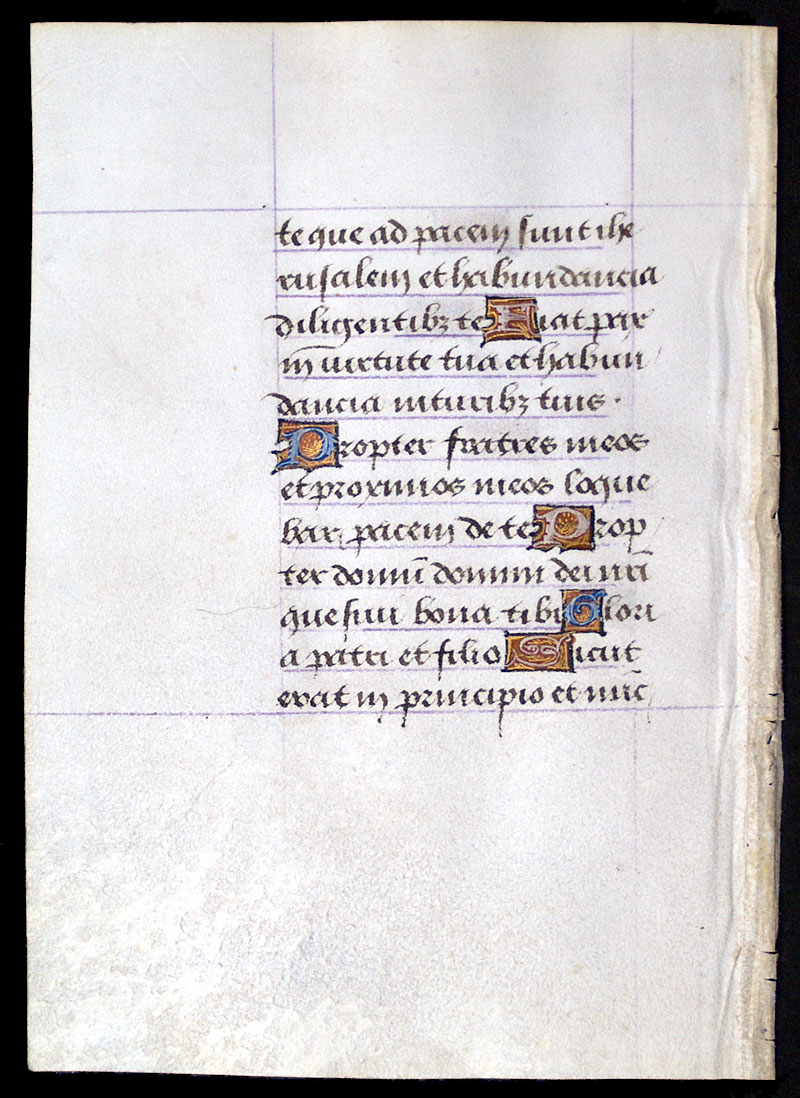 te que ad pacem sunt ihe
rusalem et habundancia
diligentibꝫ te Fiat pax
in virtute tua et habun
dancia in turibꝫ tuis ·
Propter fratres meos
et proximos meos loque
bar pacem de te Prop
ter domū domini dei nr̄i
quesivi bona tibi Glori
a patri et filio Sicut
erat in principio et nūc